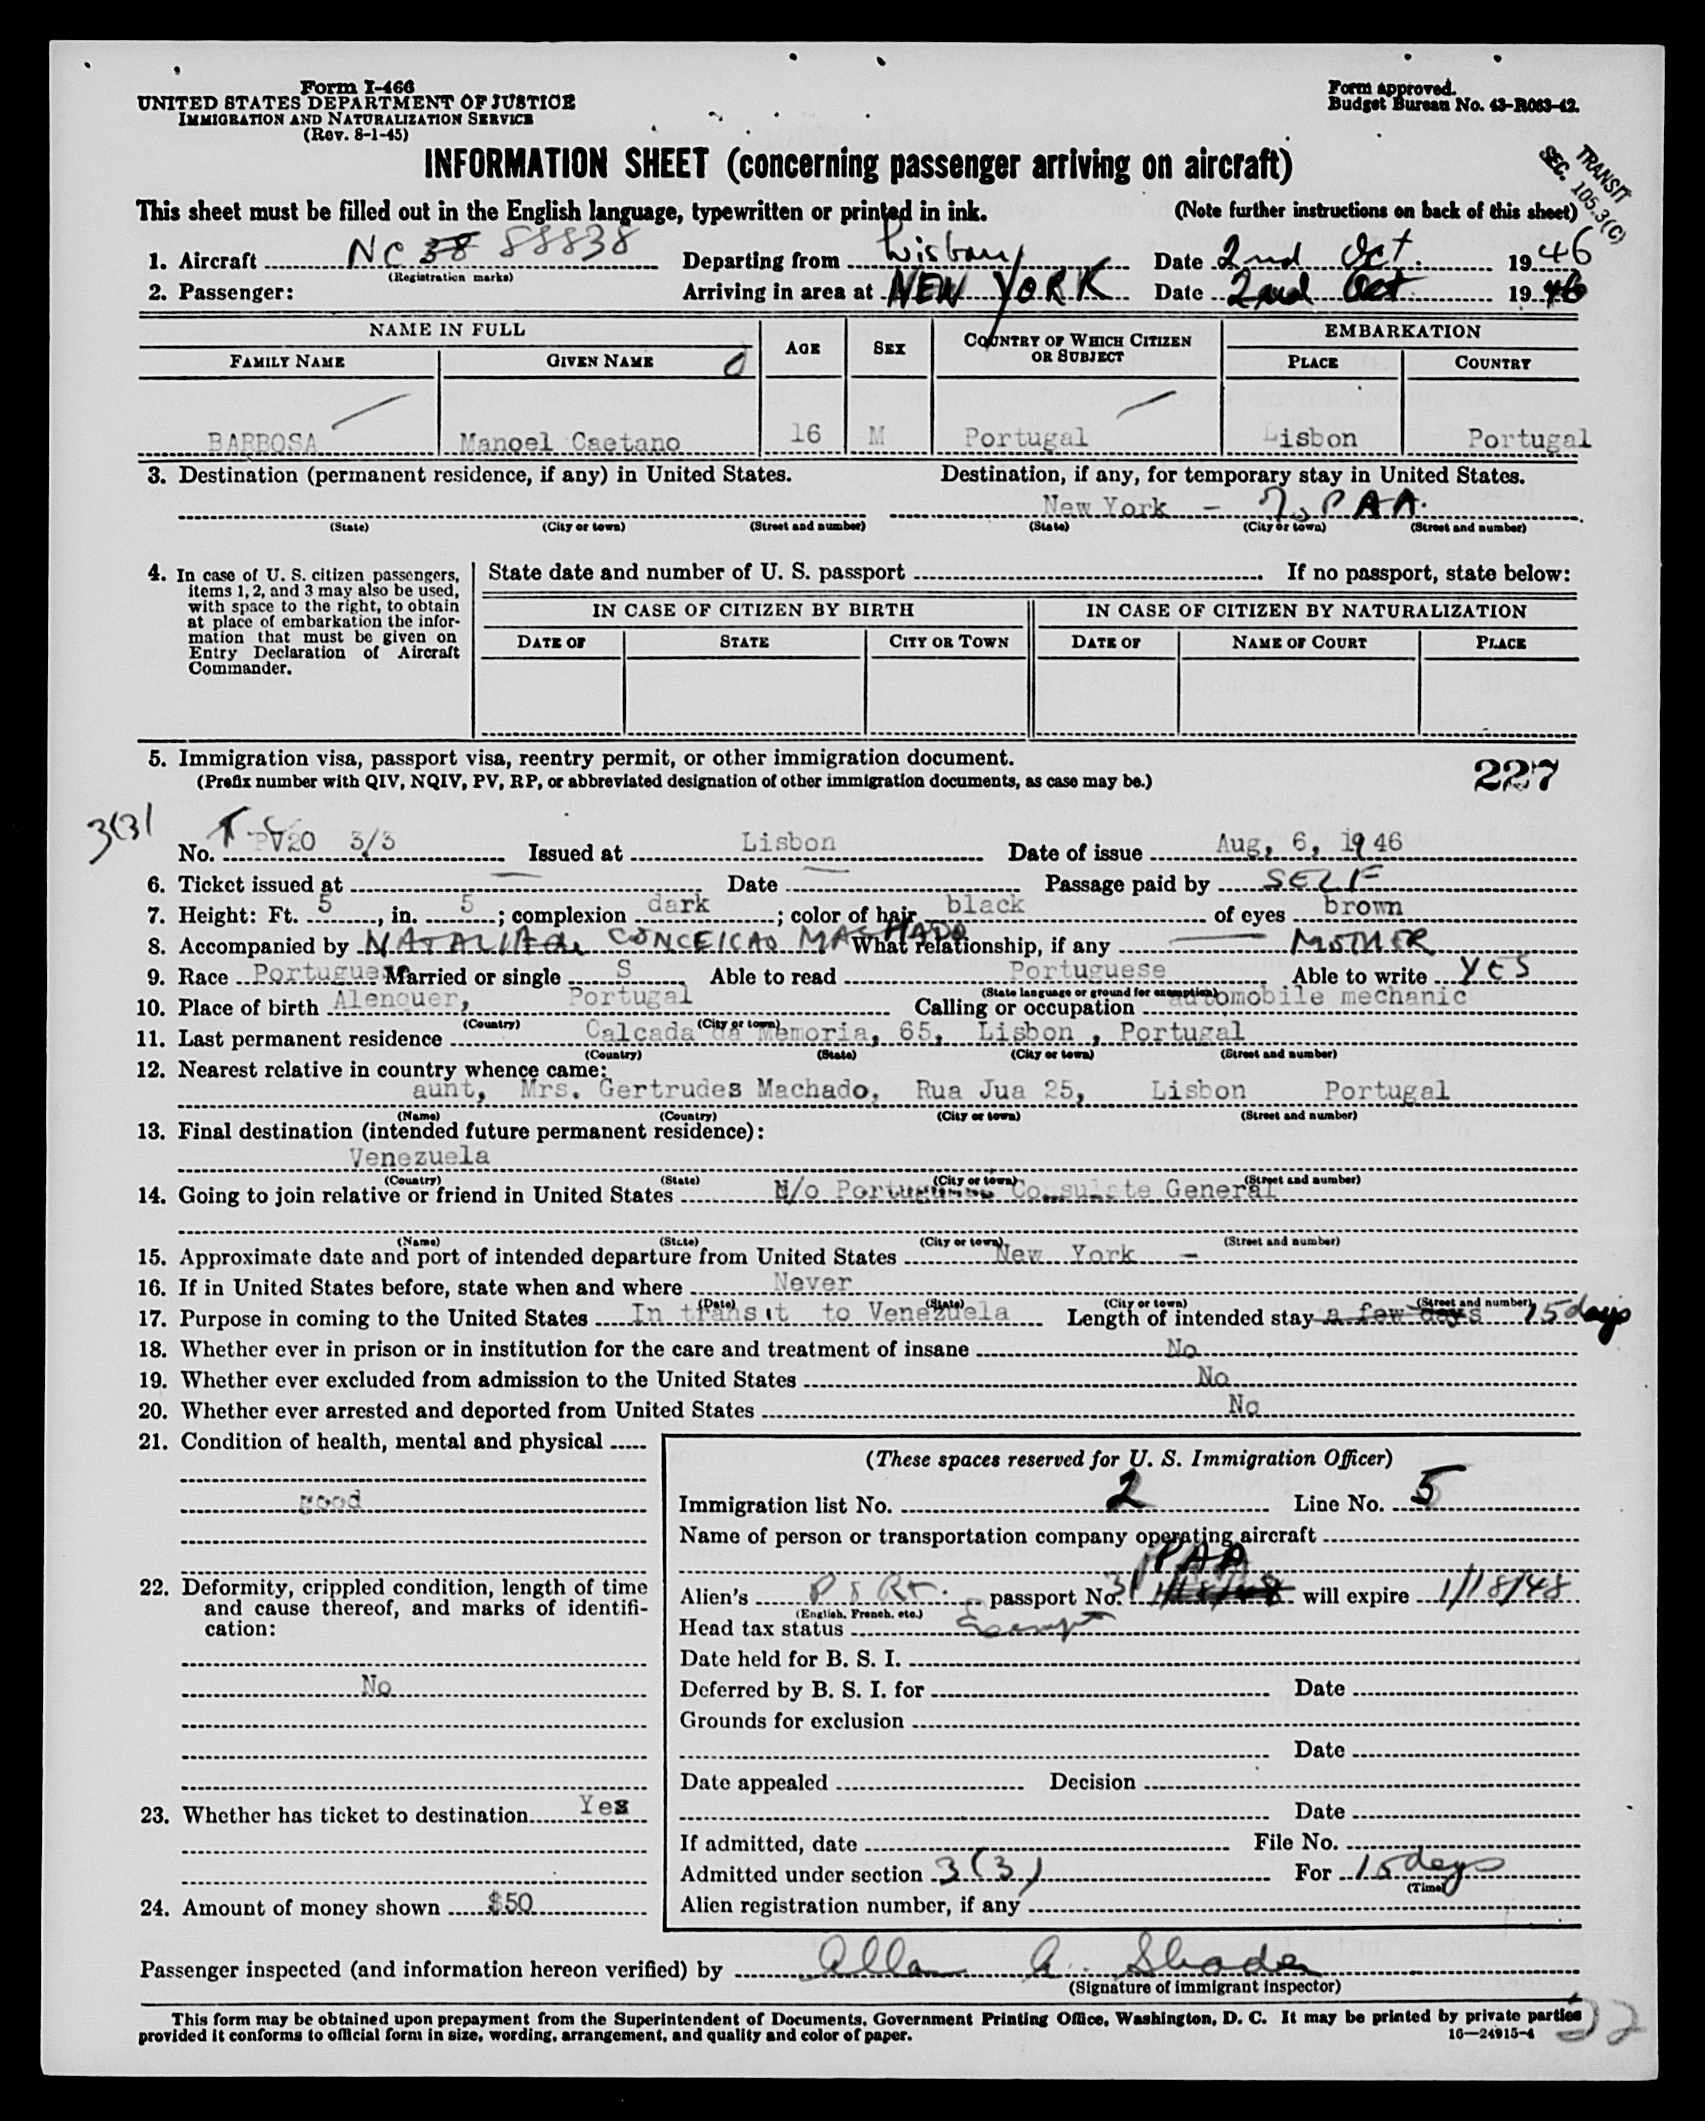 Form I-466
UNITED STATES DEPARTMENT OF JUSTICE
IMMIGRATION AND NATURALIZATION SERVICE
(Rev. 8-1-45)
Form approved.
Budget Bureau No. 43-R063-42.
TRANSIT
SEC. 105.3(C)
INFORMATION SHEET (concerning passenger arriving on aircraft)
This sheet must be filled out in the English language, typewritten or printed in ink. (Note further instructions on back of this sheet)
1. Aircraft NC 38 88838 Departing from Lisbon Date 2nd Oct. 1946
(Registration marks)
2. Passenger: Arriving in area at NEW YORK Date 2nd Oct 1946
NAME IN FULL AGE SEX COUNTRY OF WHICH CITIZEN OR SUBJECT EMBARKATION
FAMILY NAME GIVEN NAME PLACE COUNTRY
BARBOSA Manoel Caetano 16 M Portugal Lisbon Portugal
3. Destination (permanent residence, if any) in United States. Destination, if any, for temporary stay in United States.
New York - % PAA.
(State) (City or town) (Street and number) (State) (City or town) (Street and number)
4. In case of U. S. citizen passengers, items 1, 2, and 3 may also be used, with space to the right, to obtain at place of embarkation the information that must be given on Entry Declaration of Aircraft Commander.
State date and number of U. S. passport If no passport, state below:
IN CASE OF CITIZEN BY BIRTH IN CASE OF CITIZEN BY NATURALIZATION
DATE OF STATE CITY OR TOWN DATE OF NAME OF COURT PLACE
5. Immigration visa, passport visa, reentry permit, or other immigration document.
(Prefix number with QIV, NQIV, PV, RP, or abbreviated designation of other immigration documents, as case may be.)
227
3(3)
No. PV20 3/3 Issued at Lisbon Date of issue Aug, 6, 1946
6. Ticket issued at — Date — Passage paid by SELF
7. Height: Ft. 5, in. 5; complexion dark; color of hair black of eyes brown
8. Accompanied by NATALIA da CONCEICAO MACHADO What relationship, if any MOTHER
9. Race Portuguese Married or single S Able to read Portuguese Able to write YES
(State language or ground for exemption)
10. Place of birth Alenquer, Portugal Calling or occupation automobile mechanic
(Country) (City or town)
11. Last permanent residence Calcada da Memoria, 65, Lisbon, Portugal
(Country) (State) (City or town) (Street and number)
12. Nearest relative in country whence came:
aunt, Mrs. Gertrudes Machado, Rua Jua 25, Lisbon Portugal
(Name) (Country) (City or town) (Street and number)
13. Final destination (intended future permanent residence):
Venezuela
(Country) (State) (City or town) (Street and number)
14. Going to join relative or friend in United States N/o Portuguese Consulate General
(Name) (State) (City or town) (Street and number)
15. Approximate date and port of intended departure from United States New York -
16. If in United States before, state when and where Never
(Date) (State) (City or town) (Street and number)
17. Purpose in coming to the United States In transit to Venezuela Length of intended stay a few days 15 days
18. Whether ever in prison or in institution for the care and treatment of insane No
19. Whether ever excluded from admission to the United States No
20. Whether ever arrested and deported from United States No
21. Condition of health, mental and physical
good
22. Deformity, crippled condition, length of time and cause thereof, and marks of identification:
No
23. Whether has ticket to destination Yes
24. Amount of money shown $50
(These spaces reserved for U. S. Immigration Officer)
Immigration list No. 2 Line No. 5
Name of person or transportation company operating aircraft
PAA
Alien's passport No. 31 will expire 1/18/48
(English, French, etc.)
Head tax status Exempt
Date held for B. S. I.
Deferred by B. S. I. for Date
Grounds for exclusion
Date
Date appealed Decision
Date
If admitted, date File No.
Admitted under section 3(3) For 15 days
(Time)
Alien registration number, if any
Passenger inspected (and information hereon verified) by Allan A. Shader
(Signature of immigrant inspector)
This form may be obtained upon prepayment from the Superintendent of Documents, Government Printing Office, Washington, D. C. It may be printed by private parties
provided it conforms to official form in size, wording, arrangement, and quality and color of paper. 16—24915-4
22